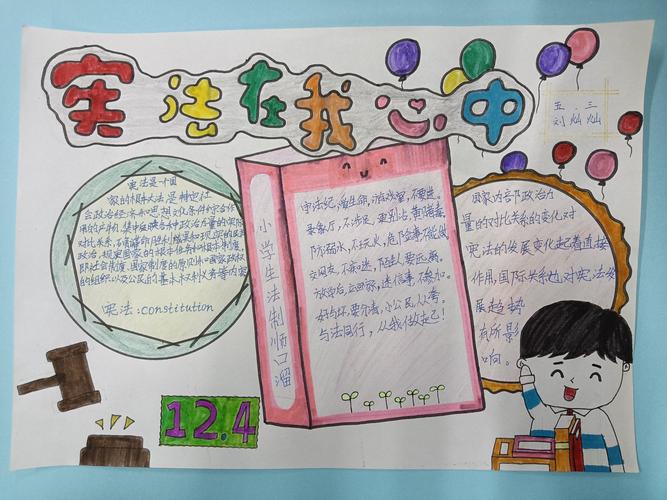 宪法在我心中
五.三
刘灿灿
宪法是一个国
家的根本大法,是特定社
会政治经济和思想文化条件综合作
用的产物,集中反映各种政治力量的实际
对比关系,
政治,规定国家的根本任务和根本制度,
即社会制度、国家制度的原则和国家政权
的组织以及公民的基本权利义务等内容
宪法:constitution
小学生法制顺口溜
守法纪,
不涉足,
防溺水,不玩火,危险事,不能做
交网友,不和迷,陌生人,要远离。
放学后,立回家,迷信事,不参加。
好与坏,要分清,小公民人人夸。
与法同行,从我做起!
国家内部政治力
量的对比关系的变化对
宪法的发展变化起着直接
作用,国际关系也对宪法发
展趋势
有所影
响。
12.4